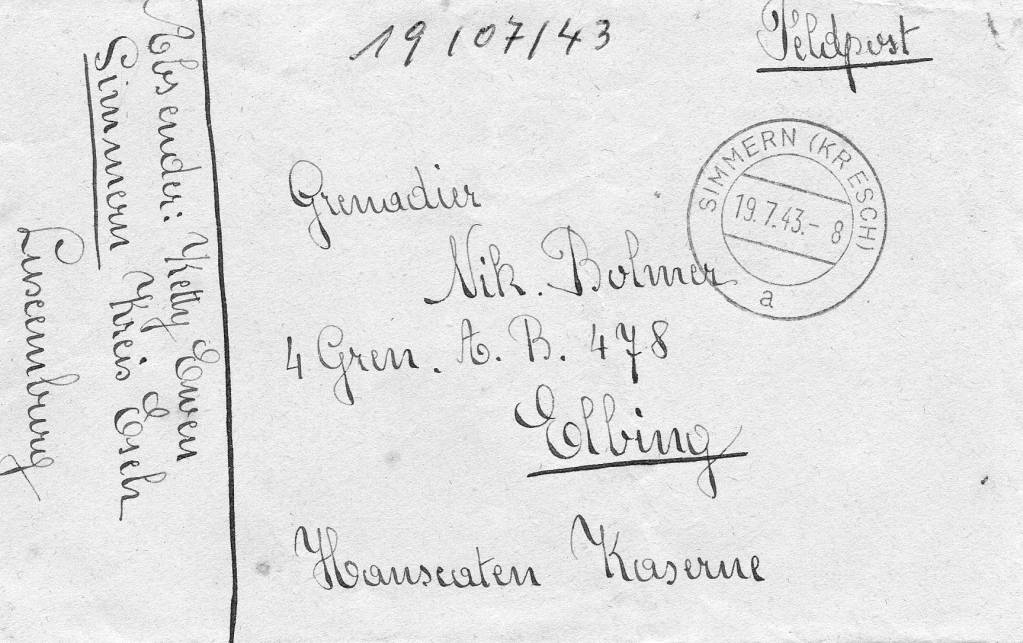 19/07/43
Feldpost
SIMMERN (KR ESCH)
19.7.43.-8
a
Grenadier
Nik. Bolmer
4 Gren. A. B. 478
Elbing
Hanseaten Kaserne
Absender: Ketty Ewen
Simmern Kreis Esch
Luxemburg